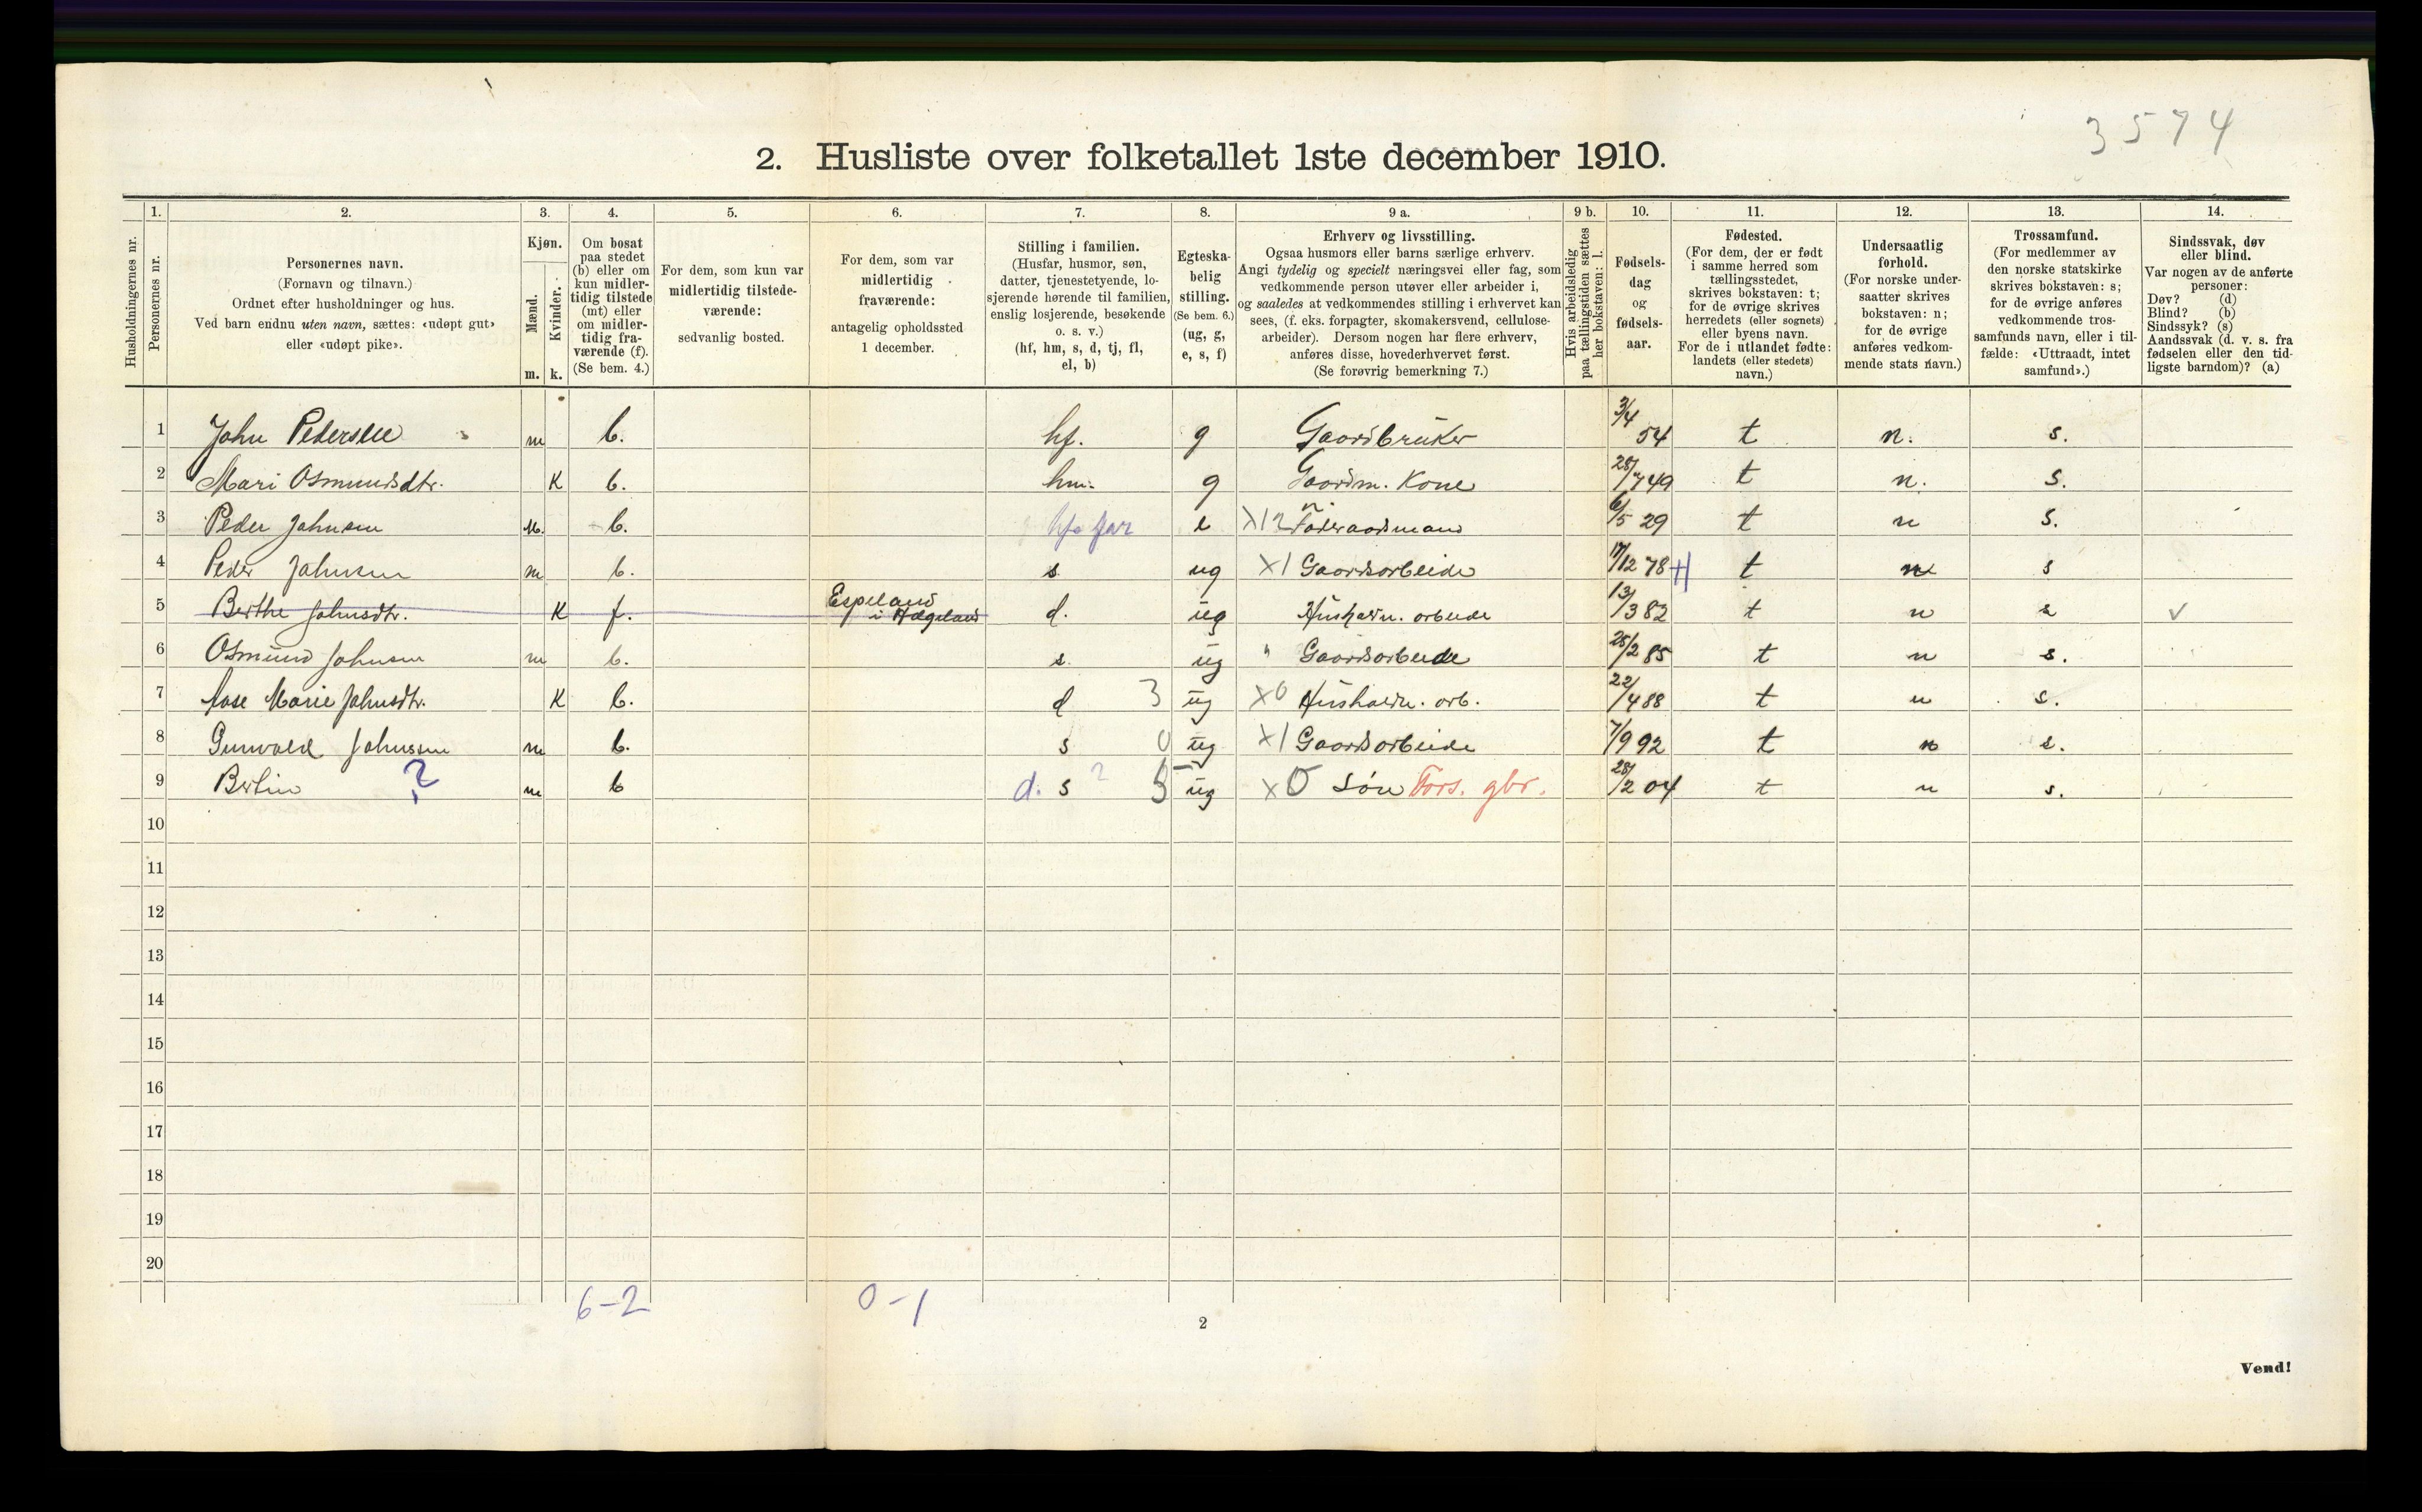 3574
2. Husliste over folketallet 1ste december 1910.
1. 2. 3. 4. 5. 6. 7. 8. 9 a. 9 b. 10. 11. 12. 13. 14.
Husholdningernes nr.
Personernes nr.
Personernes navn.
(Fornavn og tilnavn.)
Ordnet efter husholdninger og hus.
Ved barn endnu uten navn, sættes: «udøpt gut»
eller «udøpt pike».
Kjøn.
Mænd.
Kvinder.
m. k.
Om bosat
paa stedet
(b) eller om
kun midler-
tidig tilstede
(mt) eller
om midler-
tidig fra-
værende (f).
(Se bem. 4.)
For dem, som kun var
midlertidig tilstede-
værende:
sedvanlig bosted.
For dem, som var
midlertidig
fraværende:
antagelig opholdssted
1 december.
Stilling i familien.
(Husfar, husmor, søn,
datter, tjenestetyende, lo-
sjerende hørende til familien,
enslig losjerende, besøkende
o. s. v.)
(hf, hm, s, d, tj, fl,
el, b)
Egteska-
belig
stilling.
(Se bem. 6.)
(ug, g,
e, s, f)
Erhverv og livsstilling.
Ogsaa husmors eller barns særlige erhverv.
Angi tydelig og specielt næringsvei eller fag, som
vedkommende person utøver eller arbeider i,
og saaledes at vedkommendes stilling i erhvervet kan
sees, (f. eks. forpagter, skomakersvend, cellulose-
arbeider). Dersom nogen har flere erhverv,
anføres disse, hovederhvervet først.
(Se forøvrig bemerkning 7.)
Hvis arbeidsledig
paa tællingstiden sættes
her bokstaven: l.
Fødsels-
dag
og
fødsels-
aar.
Fødested.
(For dem, der er født
i samme herred som
tællingsstedet,
skrives bokstaven: t;
for de øvrige skrives
herredets (eller sognets)
eller byens navn.
For de i utlandet fødte:
landets (eller stedets)
navn.)
Undersaatlig
forhold.
(For norske under-
saatter skrives
bokstaven: n;
for de øvrige
anføres vedkom-
mende stats navn.)
Trossamfund.
(For medlemmer av
den norske statskirke
skrives bokstaven: s;
for de øvrige anføres
vedkommende tros-
samfunds navn, eller i til-
fælde: «Uttraadt, intet
samfund».)
Sindssvak, døv
eller blind.
Var nogen av de anførte
personer:
Døv? (d)
Blind? (b)
Sindssyk? (s)
Aandssvak (d. v. s. fra
fødselen eller den tid-
ligste barndom)? (a)
1 John Pedersen m b. hf. g Gaardbruker 3/4 54 t n. s.
2 Mari Osmundsdtr. K b. hm. g Gaardm. Kone 28/7 49 t n. s.
3 Peder Johnsen m. b. hfs far e X12 Føderaadsmand 6/5 29 t n s.
4 Peder Johnsen m b. s ug X1 Gaardsarbeide 17/12 78 t n s
5 Berthe Johnsdtr. K f. Espeland i Hægeland d. ug Husholdn. arbeide 13/3 82 t n s ✓
6 Osmund Johnsen m b. s. ug " Gaardsarbeide 25/2 85 t n s.
7 Aase Marie Johnsdtr. K b. d 3 ug X0 Husholdn. arb. 22/4 88 t n s.
8 Gunvald Johnsen m b. s 0 ug X1 Gaardsarbeide 7/9 92 t n s.
9 Bertin ? m b d. s ? 5 ug X0 Søn Fors. gbr. 28/2 04 t n s.
10
11
12
13
14
15
16
17
18
19
20
6-2 0-1
2
Vend!